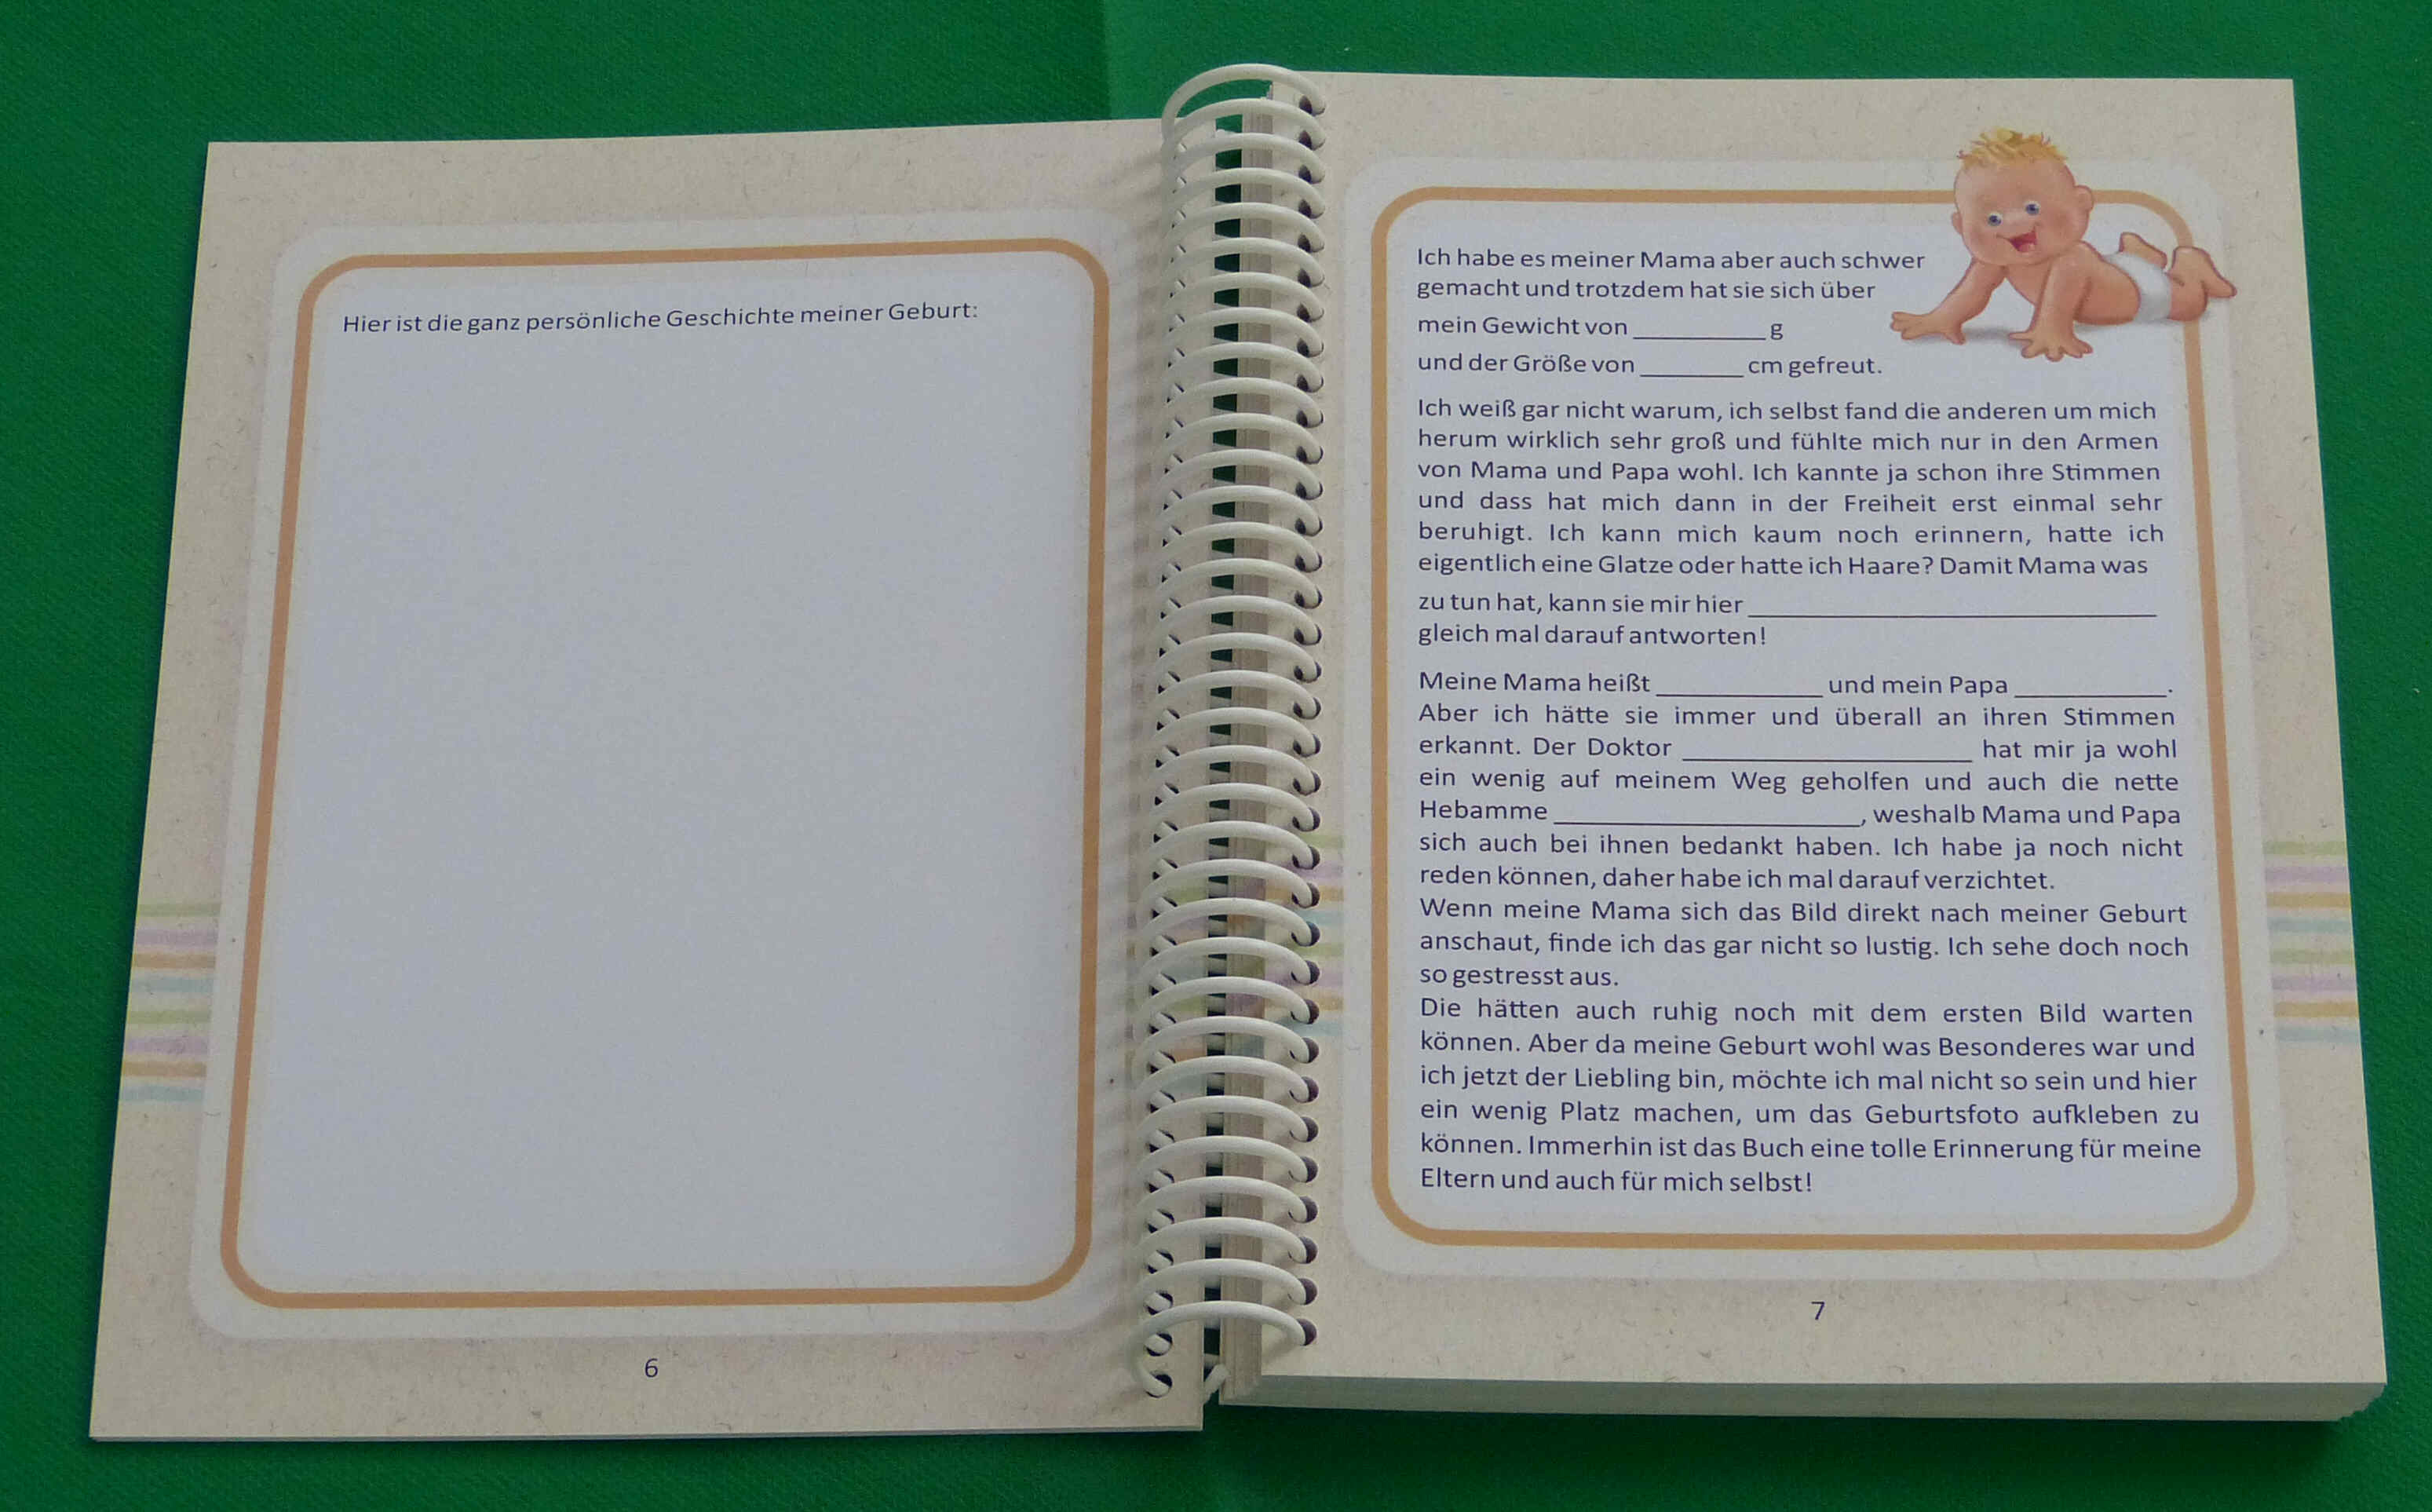 Hier ist die ganz persönliche Geschichte meiner Geburt:
6
Ich habe es meiner Mama aber auch schwer
gemacht und trotzdem hat sie sich über
mein Gewicht von __________ g
und der Größe von ________ cm gefreut.
Ich weiß gar nicht warum, ich selbst fand die anderen um mich
herum wirklich sehr groß und fühlte mich nur in den Armen
von Mama und Papa wohl. Ich kannte ja schon ihre Stimmen
und dass hat mich dann in der Freiheit erst einmal sehr
beruhigt. Ich kann mich kaum noch erinnern, hatte ich
eigentlich eine Glatze oder hatte ich Haare? Damit Mama was
zu tun hat, kann sie mir hier ______________________________
gleich mal darauf antworten!
Meine Mama heißt ____________ und mein Papa ___________.
Aber ich hätte sie immer und überall an ihren Stimmen
erkannt. Der Doktor _____________________ hat mir ja wohl
ein wenig auf meinem Weg geholfen und auch die nette
Hebamme ______________________, weshalb Mama und Papa
sich auch bei ihnen bedankt haben. Ich habe ja noch nicht
reden können, daher habe ich mal darauf verzichtet.
Wenn meine Mama sich das Bild direkt nach meiner Geburt
anschaut, finde ich das gar nicht so lustig. Ich sehe doch noch
so gestresst aus.
Die hätten auch ruhig noch mit dem ersten Bild warten
können. Aber da meine Geburt wohl was Besonderes war und
ich jetzt der Liebling bin, möchte ich mal nicht so sein und hier
ein wenig Platz machen, um das Geburtsfoto aufkleben zu
können. Immerhin ist das Buch eine tolle Erinnerung für meine
Eltern und auch für mich selbst!
7